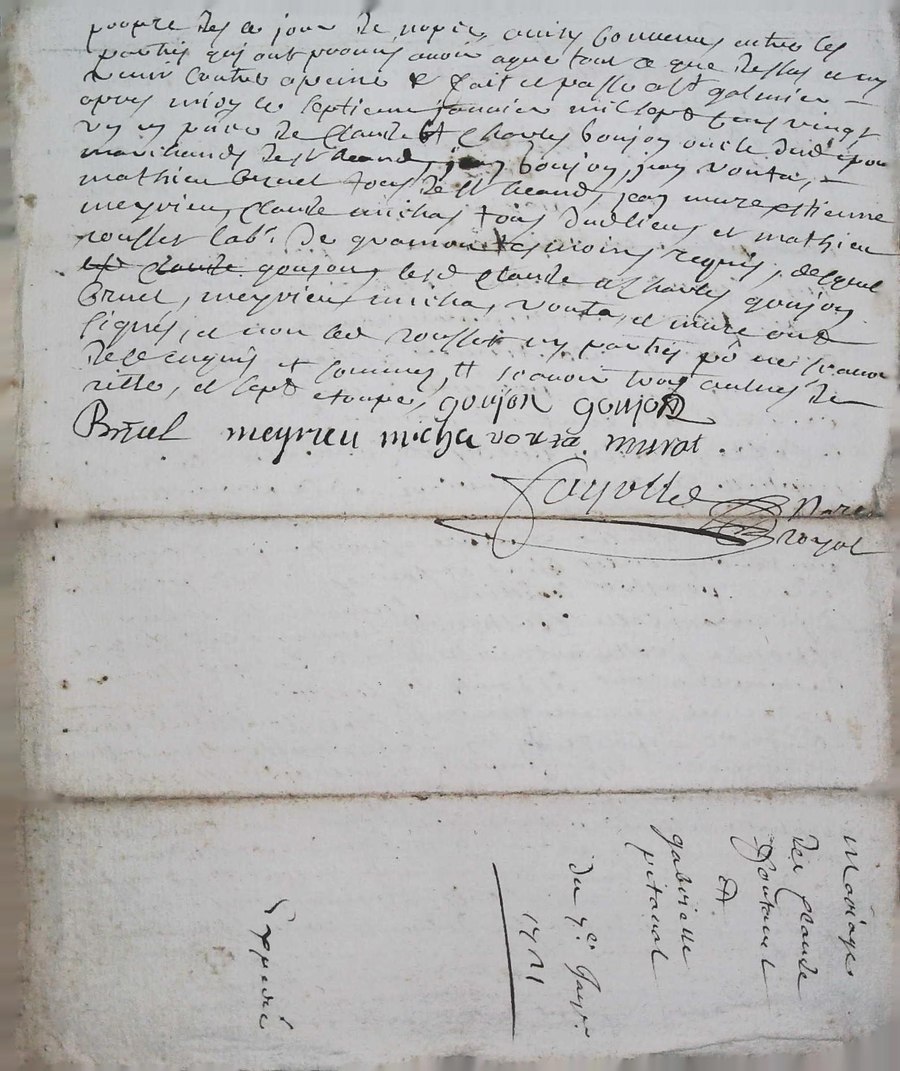 propre des ce jour de nopces, ainsy convenus entre les
parties qui ont promis avoir agre tout ce que dessus et n'y
venir contre a peine & fait et passe a st galmier
apres midy le septieme janvier mil sept cens vingt
un en pnce de Claude et Charles goujon oncle dud epou
marchands de st heand, jean goujon, jean vouta,
mathieu Bruel tous de st heand, jean murat estienne
meyrieu, Claude micha tous dud lieu et mathieu
rousset lab. de tesmoins requis, desquels
goujon, lesd Claude et Charles goujon
Bruel, meyrieu, micha, vouta, et murat ont
signés, et non led rousset ny parties pr ne scavoir
de ce enquis et sommes, scavoir tous autres de
et sept goujon goujon
Bruel meyrieu micha vouta murat
fayolle Nore
royal
Mariage
de Claude
&
gabrielle
pitaval
du 7e Janv.
1721
Expedié